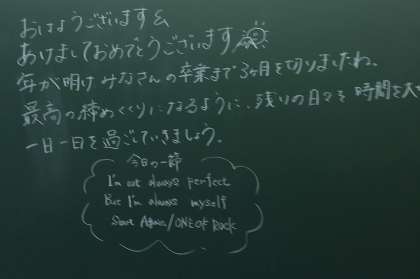 おはようございます
あけましておめでとうございます
年が明け みなさんの卒業まで3ヶ月を切りましたね。
最高の締めくくりになるように、残りの日々を 時間を大
一日一日を過ごしていきましょう。
今日の一節
I'm not always perfect
But I'm always myself
Start Again/ONE OK Rock